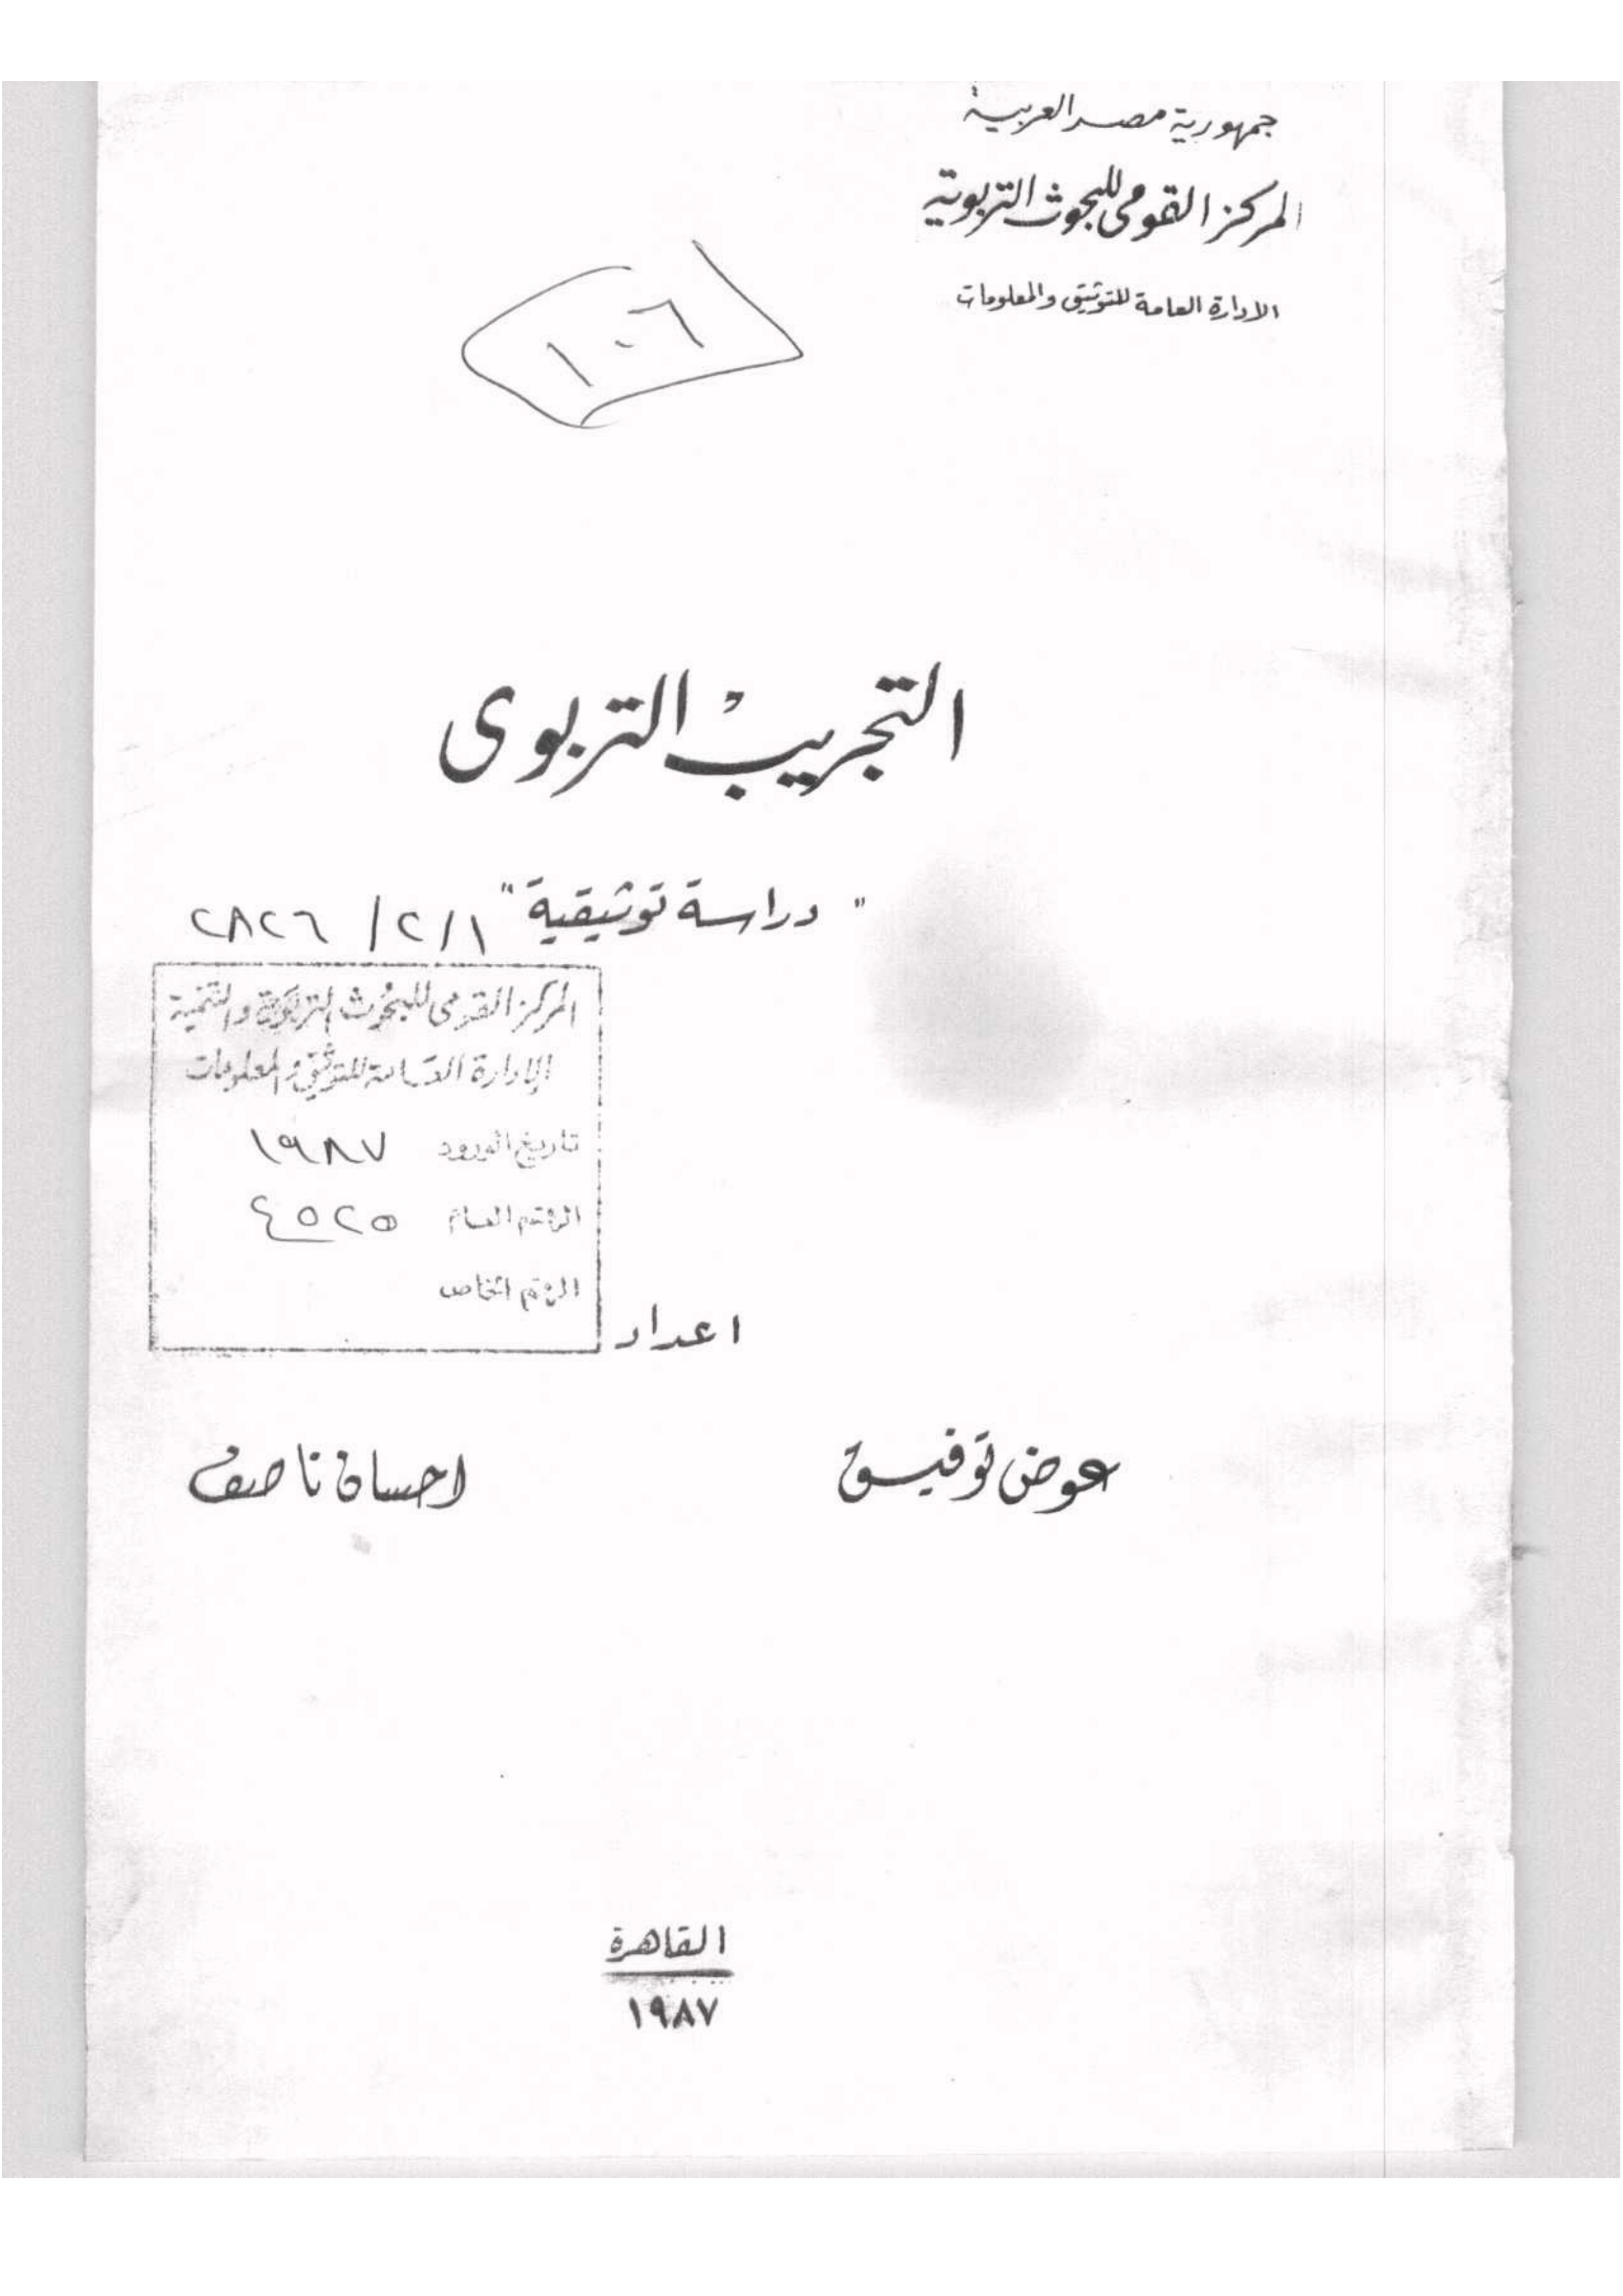 جمهورية مصر العربية
المركز القومى للبحوث التربوية
الادارة العامة للتوثيق والمعلومات
١٠٦
التجريب التربوى
" دراسة توثيقية "
٢٨٢٦ / ٢/١
المركز القومى للبحوث التربوية والتنمية
الإدارة العامة للتوثيق والمعلومات
تاريخ الورود ١٩٨٧
الرقم العام ٤٥٢٥
الرقم الخاص
اعداد
عوض توفيق احسان ناصف
القاهرة
١٩٨٧